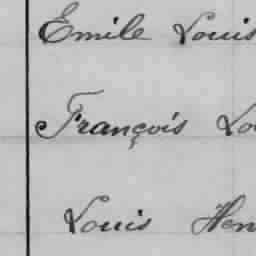 Emile Louis
François Lo
Louis Hen